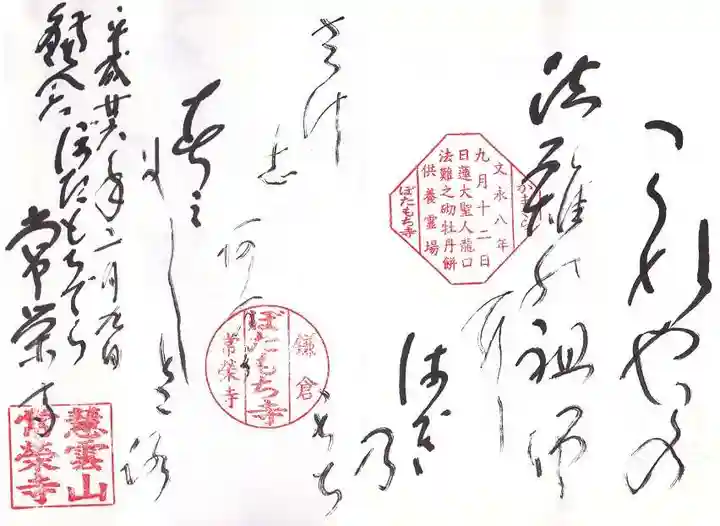 これやこの
法難の祖師
かまくら
文永八年
九月十二日
日蓮大聖人龍口
法難之砌牡丹餅
供養霊場
ぼたもち寺
はぎ
乃
もち
さゝけ
志
鎌倉
ぼたもち寺
常榮寺
春み
尓しと己路
平成廿六年二月九日
鎌倉ぼたもちでら
常栄寺
慧雲山
常榮寺